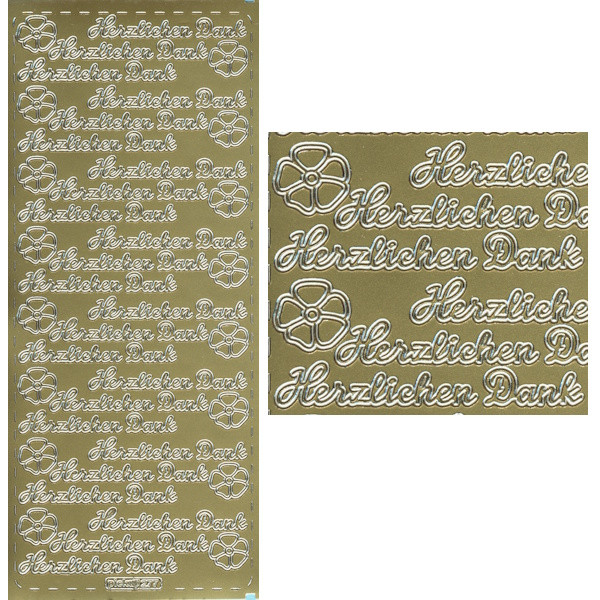 Herzlichen Dank
Herzlichen Dank
Herzlichen Dank
Herzlichen Dank
Herzlichen Dank
Herzlichen Dank
Herzlichen Dank
Herzlichen Dank
Herzlichen Dank
Herzlichen Dank
Herzlichen Dank
Herzlichen Dank
Herzlichen Dank
Herzlichen Dank
Herzlichen Dank
Herzlichen Dank
Herzlichen Dank
Herzlichen Dank
Herzlichen Dank
Herzlichen Dank
Herzlichen Dank
Herzlichen Dank
Herzlichen Dank
Herzlichen Dank
Herzlichen
Herzlichen Da
Herzlichen Dank
Herzlichen
Herzlichen Da
Herzlichen Dank